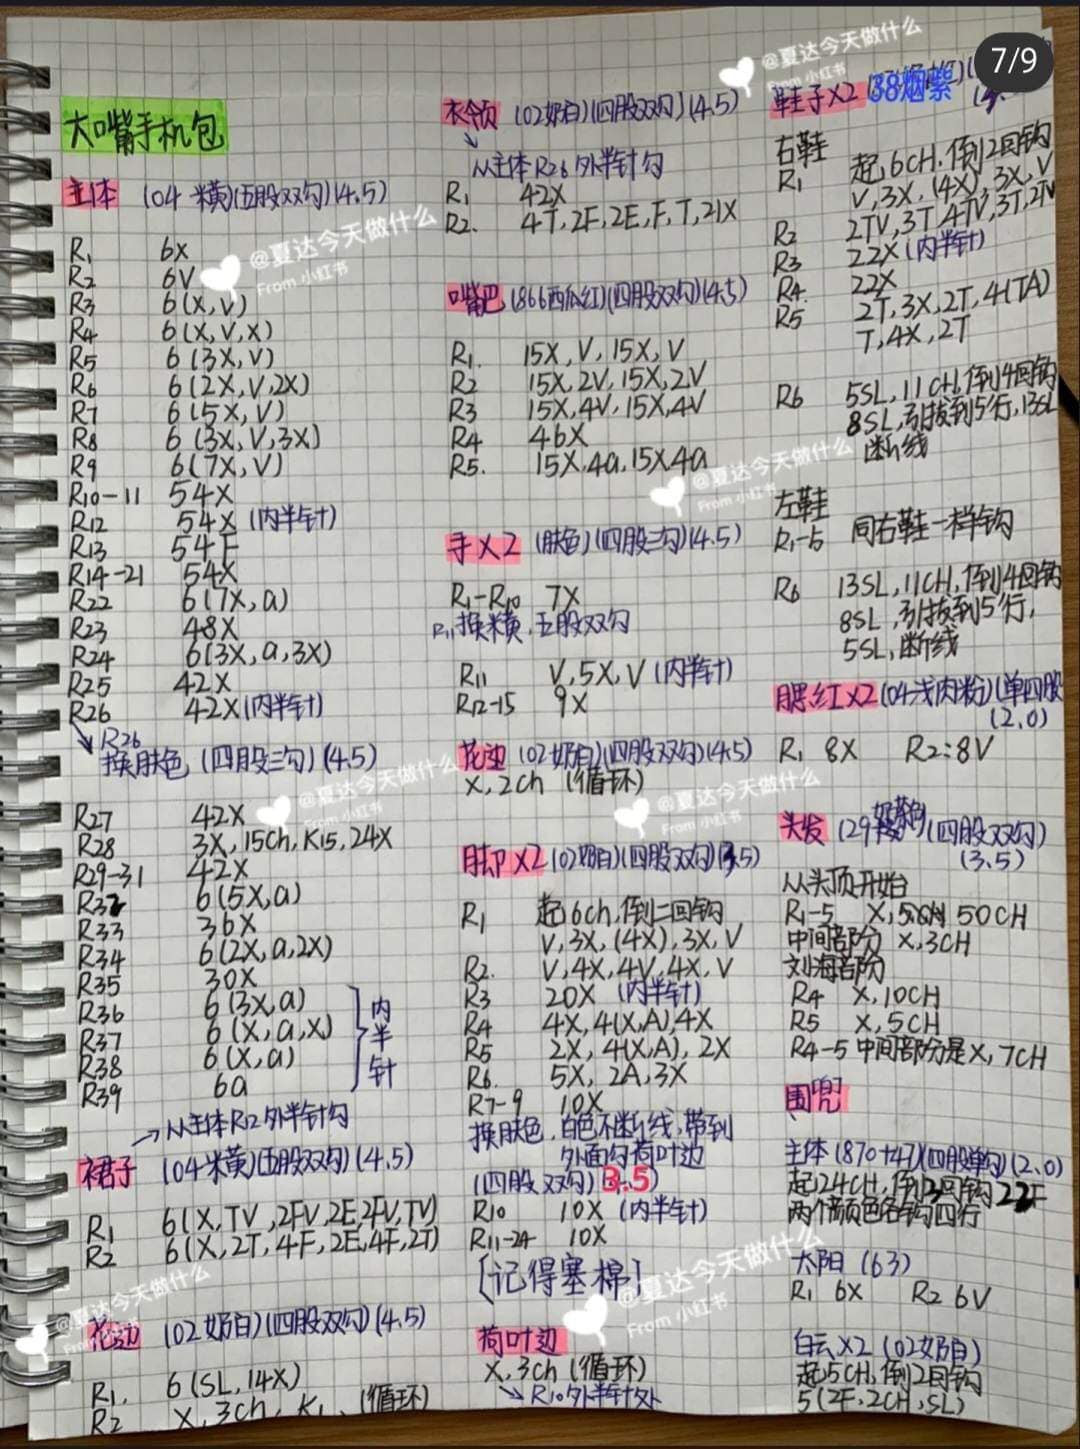 7/9
@夏达今天做什么
From 小红书
大嘴手机包
主体 (04 米横)(五股双勾)(4.5)
R1 6X
R2 6V
R3 6(X,V)
R4 6(X,V,X)
R5 6(3X,V)
R6 6(2X,V,2X)
R7 6(5X,V)
R8 6(3X,V,3X)
R9 6(7X,V)
R10-11 54X
R12 54X (内半针)
R13 54F
R14-21 54X
R22 6(7X,a)
R23 48X
R24 6(3X,a,3X)
R25 42X
R26 42X(内半针)
R26
换肤色 (四股三勾)(4.5)
R27 42X
R28 3X,15Ch,K15,24X
R29-31 42X
R32 6(5X,a)
R33 36X
R34 6(2X,a,2X)
R35 30X
R36 6(3X,a)
R37 6(X,a,X)
R38 6(X,a)
R39 6a
内半针
从主体R12外半针勾
裙子 (04米横)(五股双勾)(4.5)
R1 6(X,TV,2FV,2E,2FV,TV)
R2 6(X,2T,4F,2E,4F,2T)
花边 (02奶白)(四股双勾)(4.5)
R1. 6(SL,14X)
R2 X,3ch,K1,(循环)
衣领 (02奶白)(四股双勾)(4.5)
从主体R26外半针勾
R1 42X
R2. 4T,2F,2E,F,T,21X
嘴巴(866西瓜红)(四股双勾)(4.5)
R1. 15X,V,15X,V
R2 15X,2V,15X,2V
R3 15X,4V,15X,4V
R4 46X
R5. 15X,4a,15X,4a
手X2 (肤色)(四股三勾)(4.5)
R1-R10 7X
R11换米横,五股双勾
R11 V,5X,V(内半针)
R12-15 9X
花边 (02奶白)(四股双勾)(4.5)
X,2Ch (循环)
脚X2(02奶白)(四股双勾)(3.5)
R1 起6ch,倒二回钩
V,3X,(4X),3X,V
R2. V,4X,4V,4X,V
R3 20X (内半针)
R4 4X,4(X,A),4X
R5 2X,4(X,A),2X
R6. 5X,2A,3X
R7-9 10X
换肤色,白色不断线,带到
外面勾荷叶边
(四股双勾)(3.5)
R10 10X (内半针)
R11-24 10X
[记得塞棉]
荷叶边
X,3ch (循环)
R10外半针外
鞋子X2 38烟紫
右鞋
R1 起6CH,倒2回钩
V,3X,(4X),3X,V
R2 2TV,3T,4TV,3T,2TV
R3 22X(内半针)
R4 22X
R5 2T,3X,2T,4(TA)
T,4X,2T
R6 5SL,11CH,倒4回钩
8SL,引拔到5行,13SL
断线
左鞋
R1-5 同右鞋一样钩
R6 13SL,11CH,倒4回钩
8SL,引拔到5行,
5SL,断线
腮红X2(04浅肉粉)(单四股
(2.0)
R1 8X R2:8V
头发 (29 奶茶狗)(四股双勾)
(3.5)
从头顶开始
R1-5 X, 50CH
中间部分 X,3CH
刘海部分
R4 X,10CH
R5 X,5CH
R4-5中间部分是X,7CH
围兜
主体(870+47)(四股单勾)(2.0)
起24CH,倒3回钩22F
两个颜色各钩四行
太阳 (63)
R1 6X R2 6V
白云X2 (02奶白)
起5CH,倒2回钩
5(2F,2CH,SL)
@夏达今天做什么
From 小红书
@夏达今天做什么
From 小红书
@夏达今天做什么
From 小红书
@夏达今天做什么
From 小红书
@夏达今天做什么
From 小红书
夏达今天做什么
From 小红书